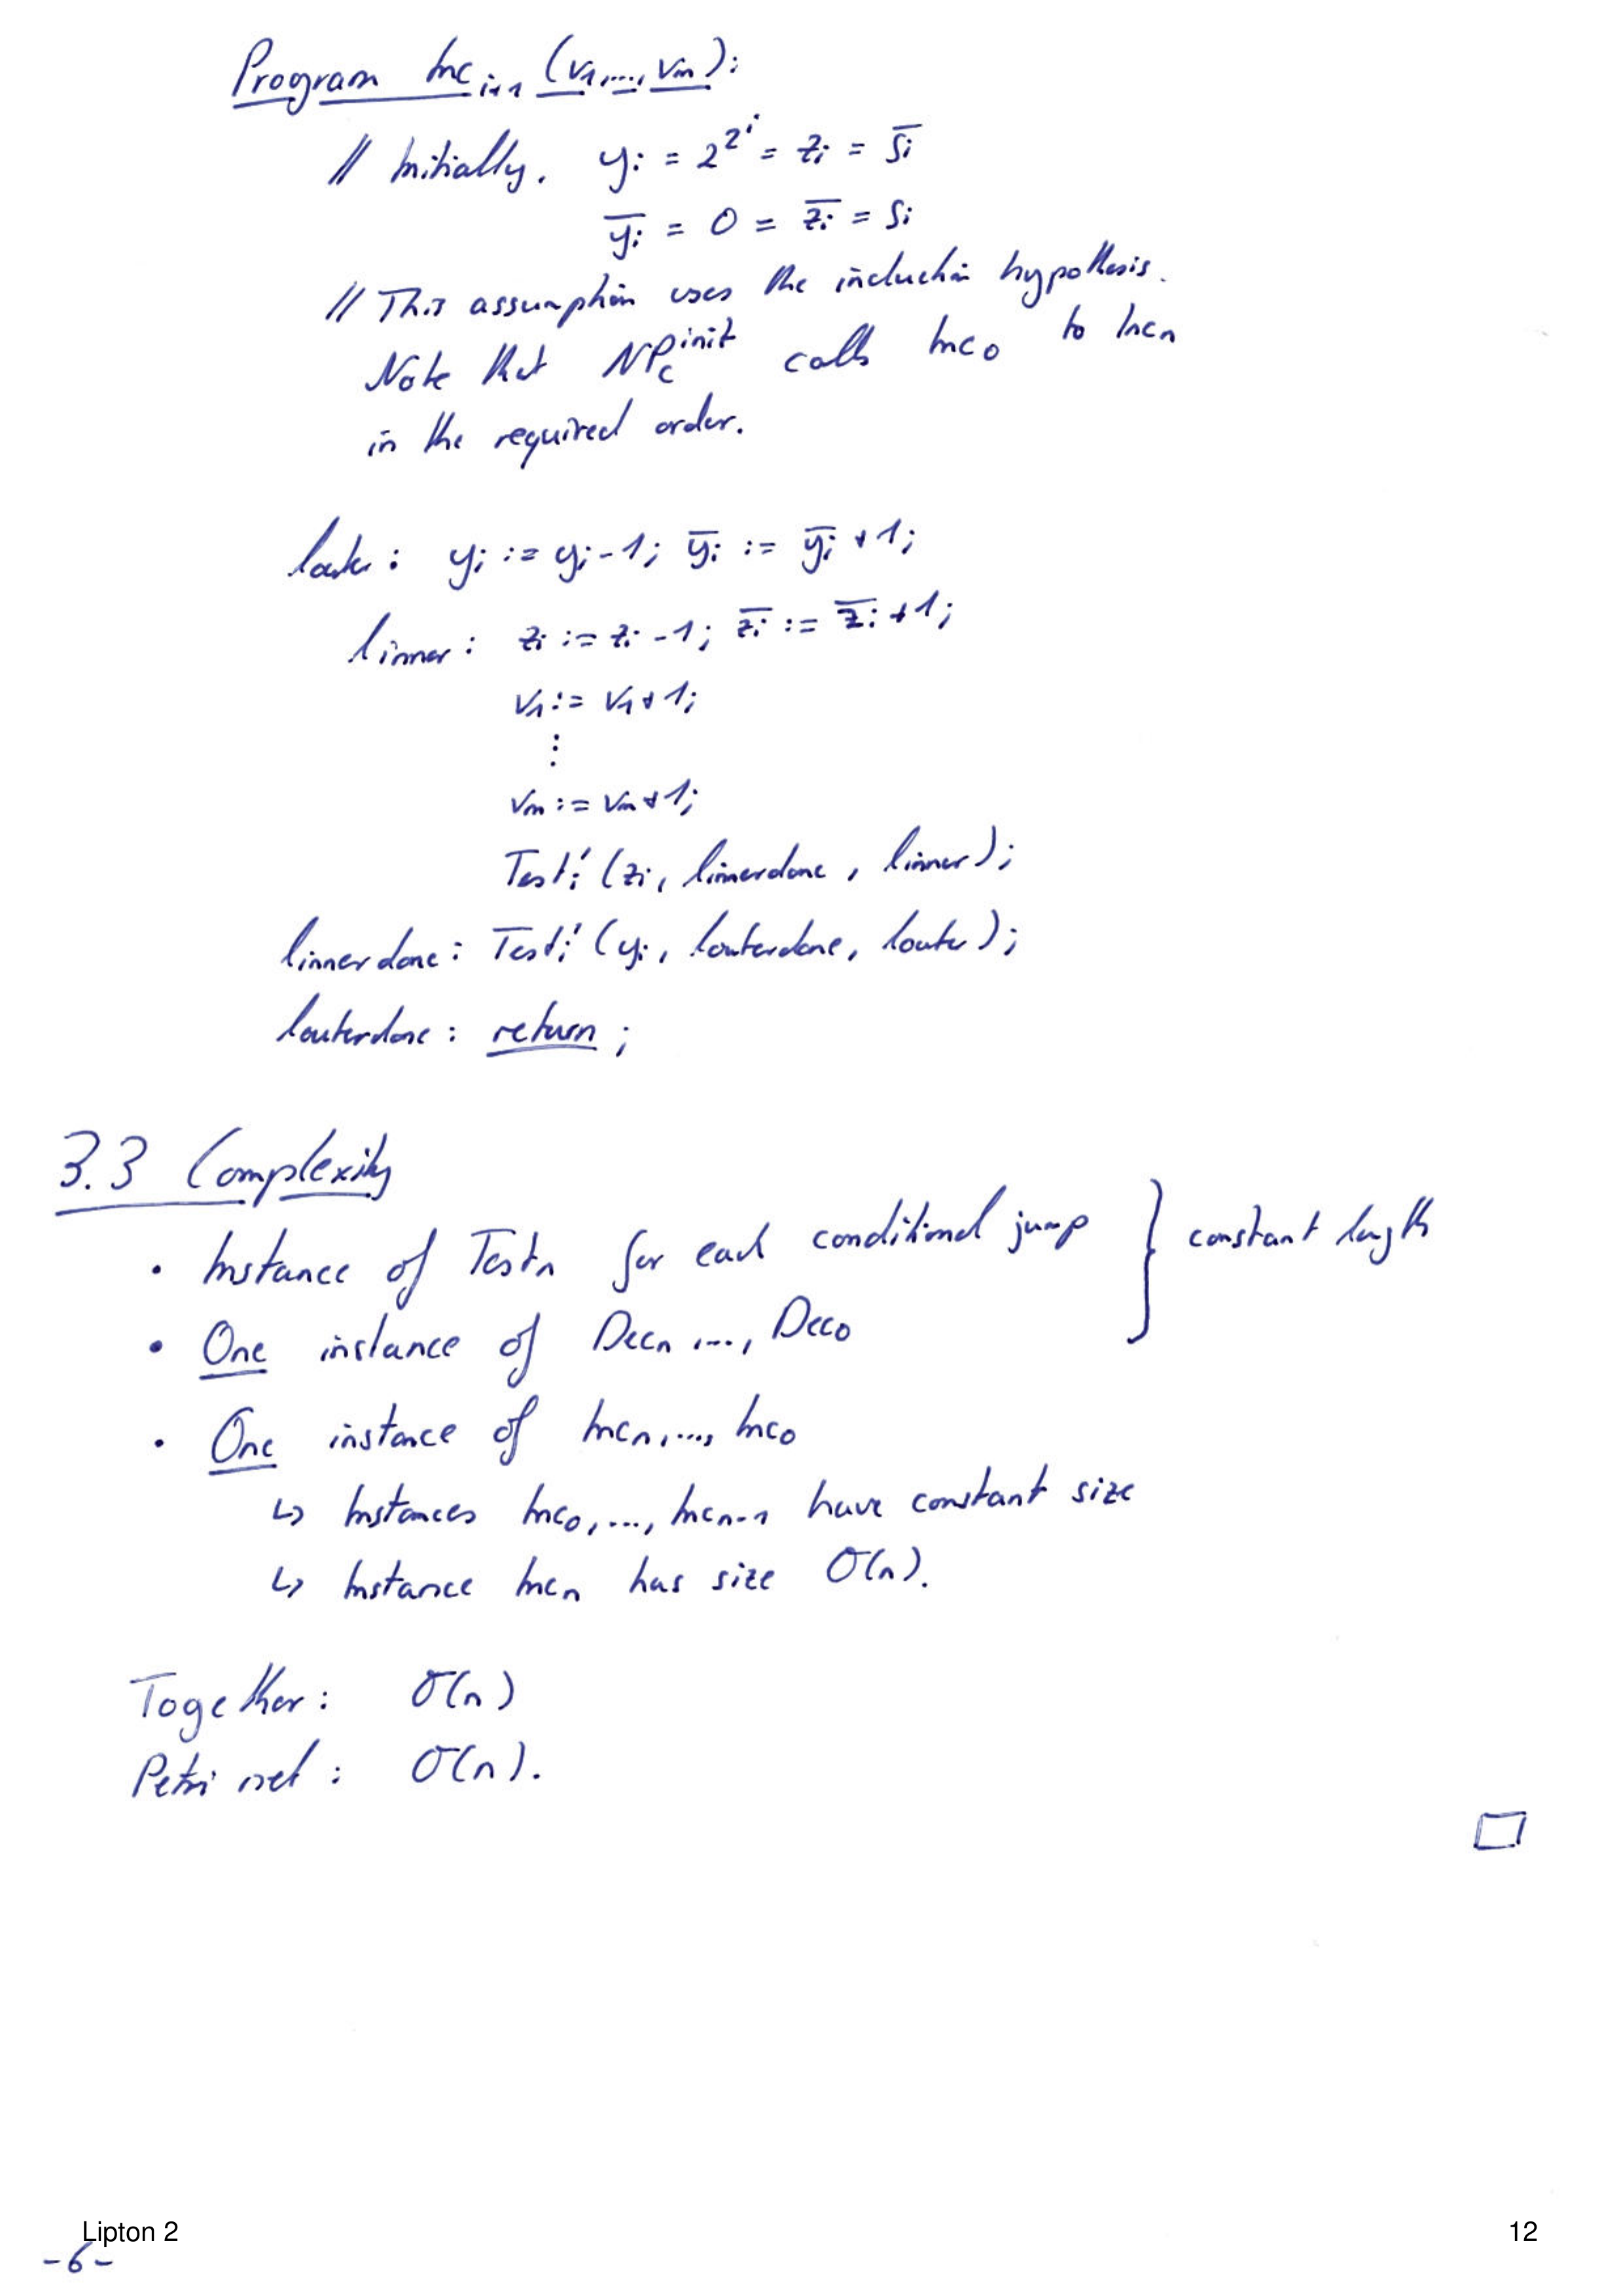 Program Inc_{i+1} (v_1, ..., v_m):
// Initially. y_i = 2^{2^i} = z_i = \overline{s_i}
\overline{y_i} = 0 = \overline{z_i} = s_i
// This assumption uses the induction hypothesis.
Note that NP_c^{init} calls Inc_0 to Inc_n
in the required order.
louter: y_i := y_i - 1; \overline{y_i} := \overline{y_i} + 1;
linner: z_i := z_i - 1; \overline{z_i} := \overline{z_i} + 1;
v_1 := v_1 + 1;
⋮
v_m := v_m + 1;
Test'_i (z_i, linnerdone, linner);
linnerdone: Test'_i (y_i, louterdone, louter);
louterdone: return;
3.3 Complexity
• Instance of Test_n for each conditional jump } constant length
• One instance of Dec_n, ..., Dec_0
• One instance of Inc_n, ..., Inc_0
↳ Instances Inc_0, ..., Inc_{n-1} have constant size
↳ Instance Inc_n has size O(n).
Together: O(n)
Petri net: O(n).
□
Lipton 2 12
-6-